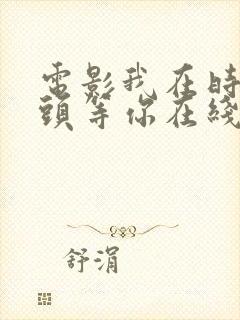 電影我在時
頭等你在綫
舒涓